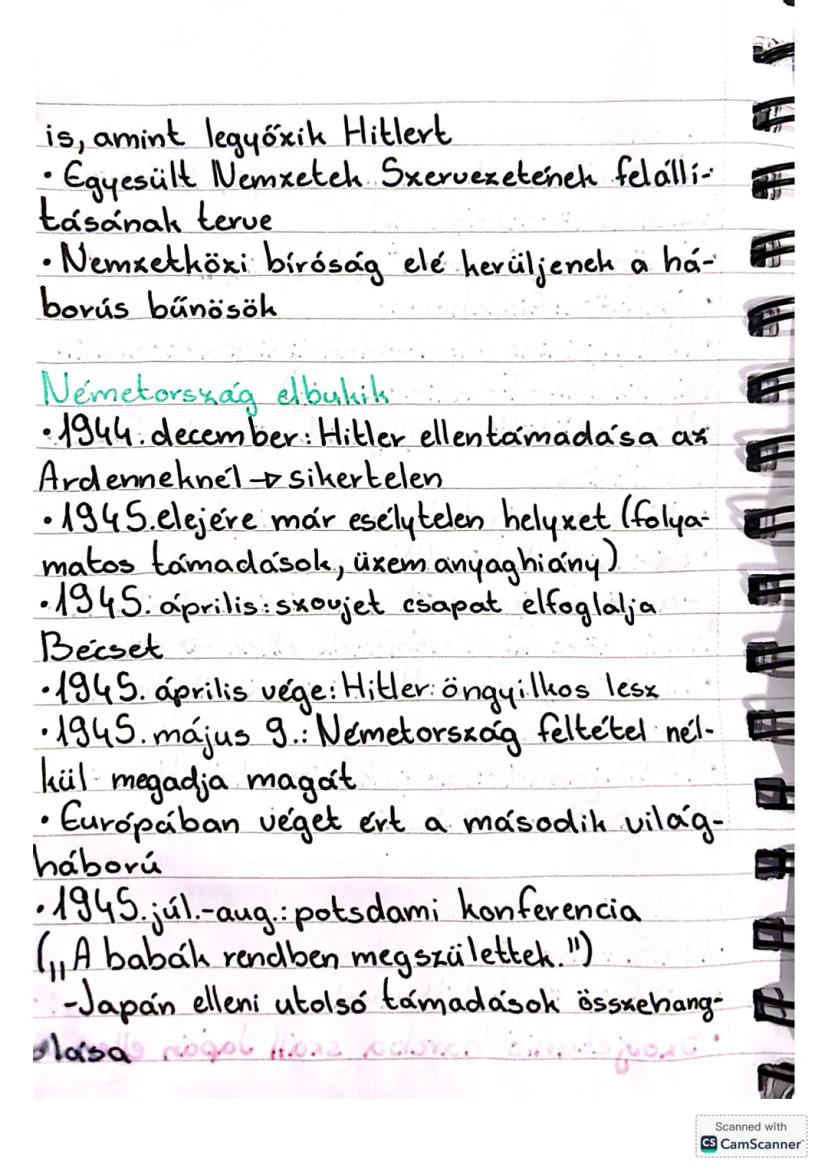 is, amint legyőzik Hitlert
• Egyesült Nemzetek Szervezetének felállí-
tásának terve
• Nemzetközi bíróság elé kerüljenek a há-
borús bűnösök
Németország elbukik
• 1944. december: Hitler ellentámadása az
Ardenneknél → sikertelen
• 1945. elejére már esélytelen helyzet (folya-
matos támadások, üzemanyaghiány)
• 1945. április: szovjet csapat elfoglalja
Bécset
• 1945. április vége: Hitler öngyilkos lesz
• 1945. május 9.: Németország feltétel nél-
kül megadja magát
• Európában véget ért a második világ-
háború
• 1945. júl.-aug.: potsdami konferencia
(„A babák rendben megszülettek.")
-Japán elleni utolsó támadások összehang-
olása
Scanned with
CS CamScanner